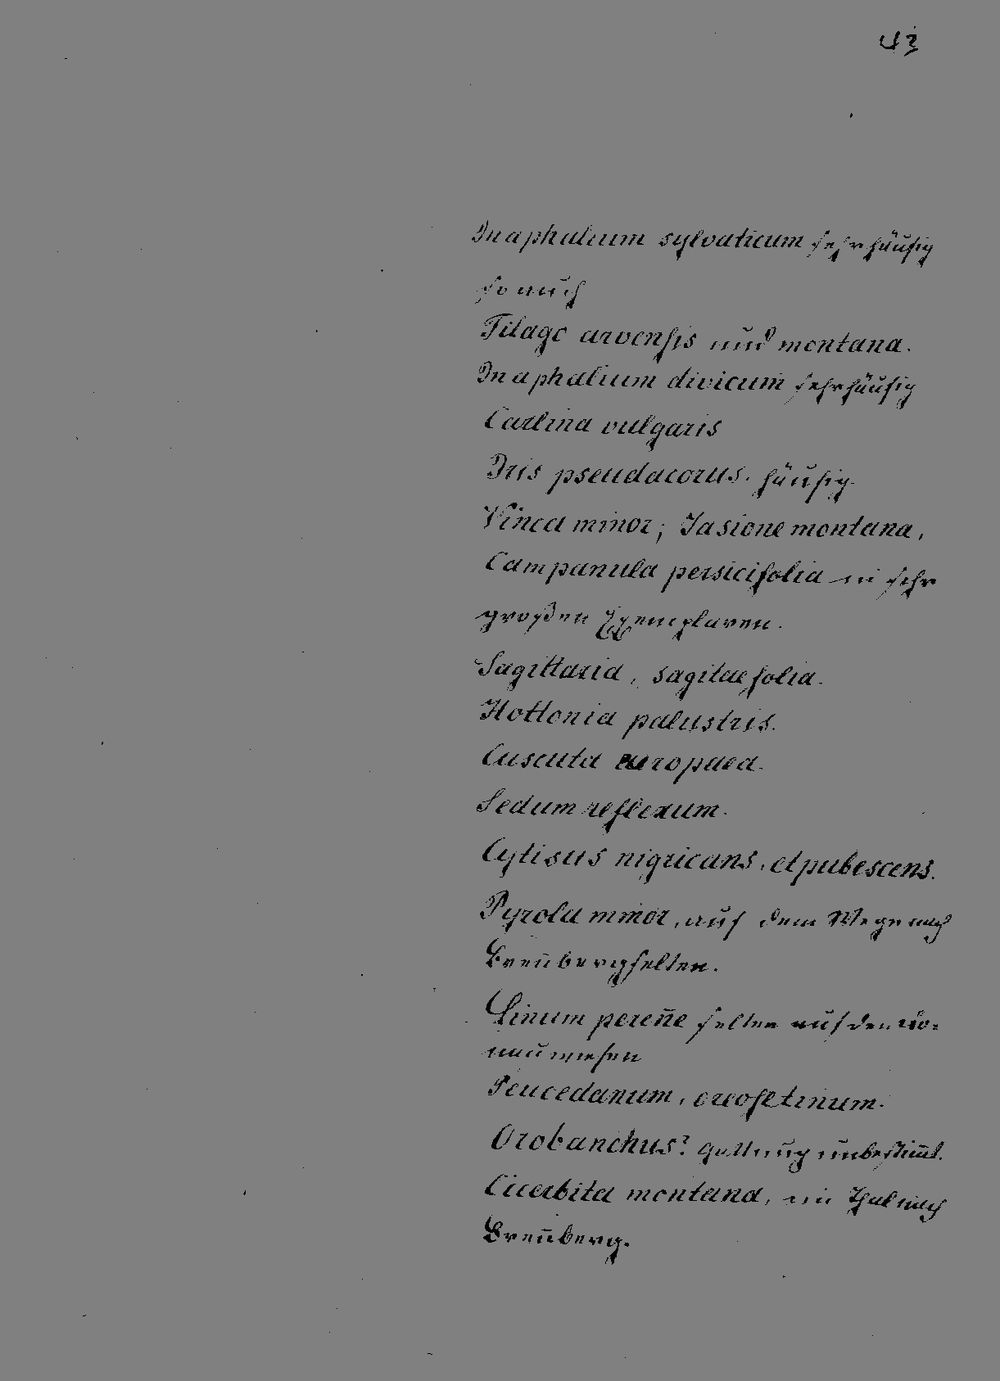 43
Gnaphalium sylvaticum sehr häufig
so auch
Filago arvensis und montana.
Gnaphalium divicum sehr häufig
Carlina vulgaris
Iris pseudacorus. häufig.
Vinca minor; Jasione montana,
Campanula persicifolia in sehr
großen Exemplaren.
Sagittaria, sagitaefolia.
Hottonia palustris.
Cuscuta europaea.
Sedum reflexum.
Cytisus nigricans, et pubescens.
Pyrola minor, auf dem Wege nach
Breūberg selten.
Linum pereñe selten auf den
Peucedanum, oreoseltinum.
Orobanchus? Gattung unbestim̄t.
Cicerbita montana, im Thal nach
Breūberg.